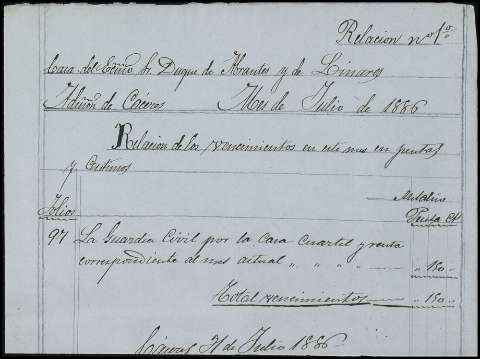 Relacion nº 1º
Casa del Excmo Sr. Duque de Abrantes y de Linares
Admon de Cáceres Mes de Julio de 1886
Relacion de los vencimientos en este mes en pesetas
y Centimos
Metalico
Folios Pesetas Cts
97 La Guardia Civil por la Casa Cuartel y renta
correspondiente al mes actual " " " " 150 "
Total vencimientos " 150 "
Cáceres 31 de Julio 1886